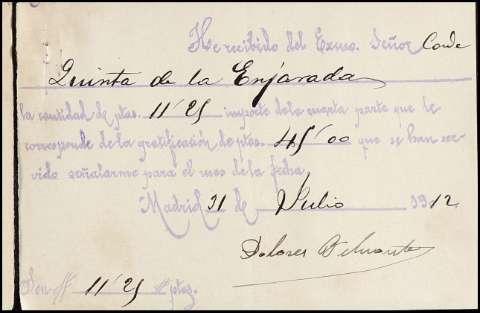 He recibido del Exmo. Señor Conde
Quinta de la Enjarada
la cantidad de ptas. 11'25 importe de la cuarta parte que le
corresponde de la gratificación de ptas. 45'00 que se han ser
vido señalarme para el mes de la fecha.
Madrid 31 de Julio 1912
Dolores
Son 11'25 ptas.